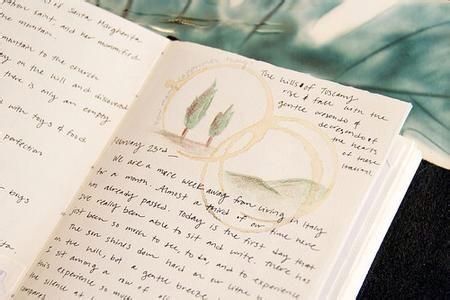 of Santa Margherita
patron saint and her mummified
the mountain.
mountain to the church
on the hill and discovered
there is only an empty
with toys & food
perfection
bugs
The hills of Tuscany
rise & fall with the
gentle crescendo &
decrescendo of
the hearts
of those
February 23rd —
We are a mere week away from living in Italy
for a month. Almost a third of our time here
has already passed. Today is the first day that
I've really been able to sit and write. There has
just been so much to see, to do, and to experience
The sun shines down hard on our little
in the hills, but a gentle breeze
I sit among a row of
this experience so much
the silence at